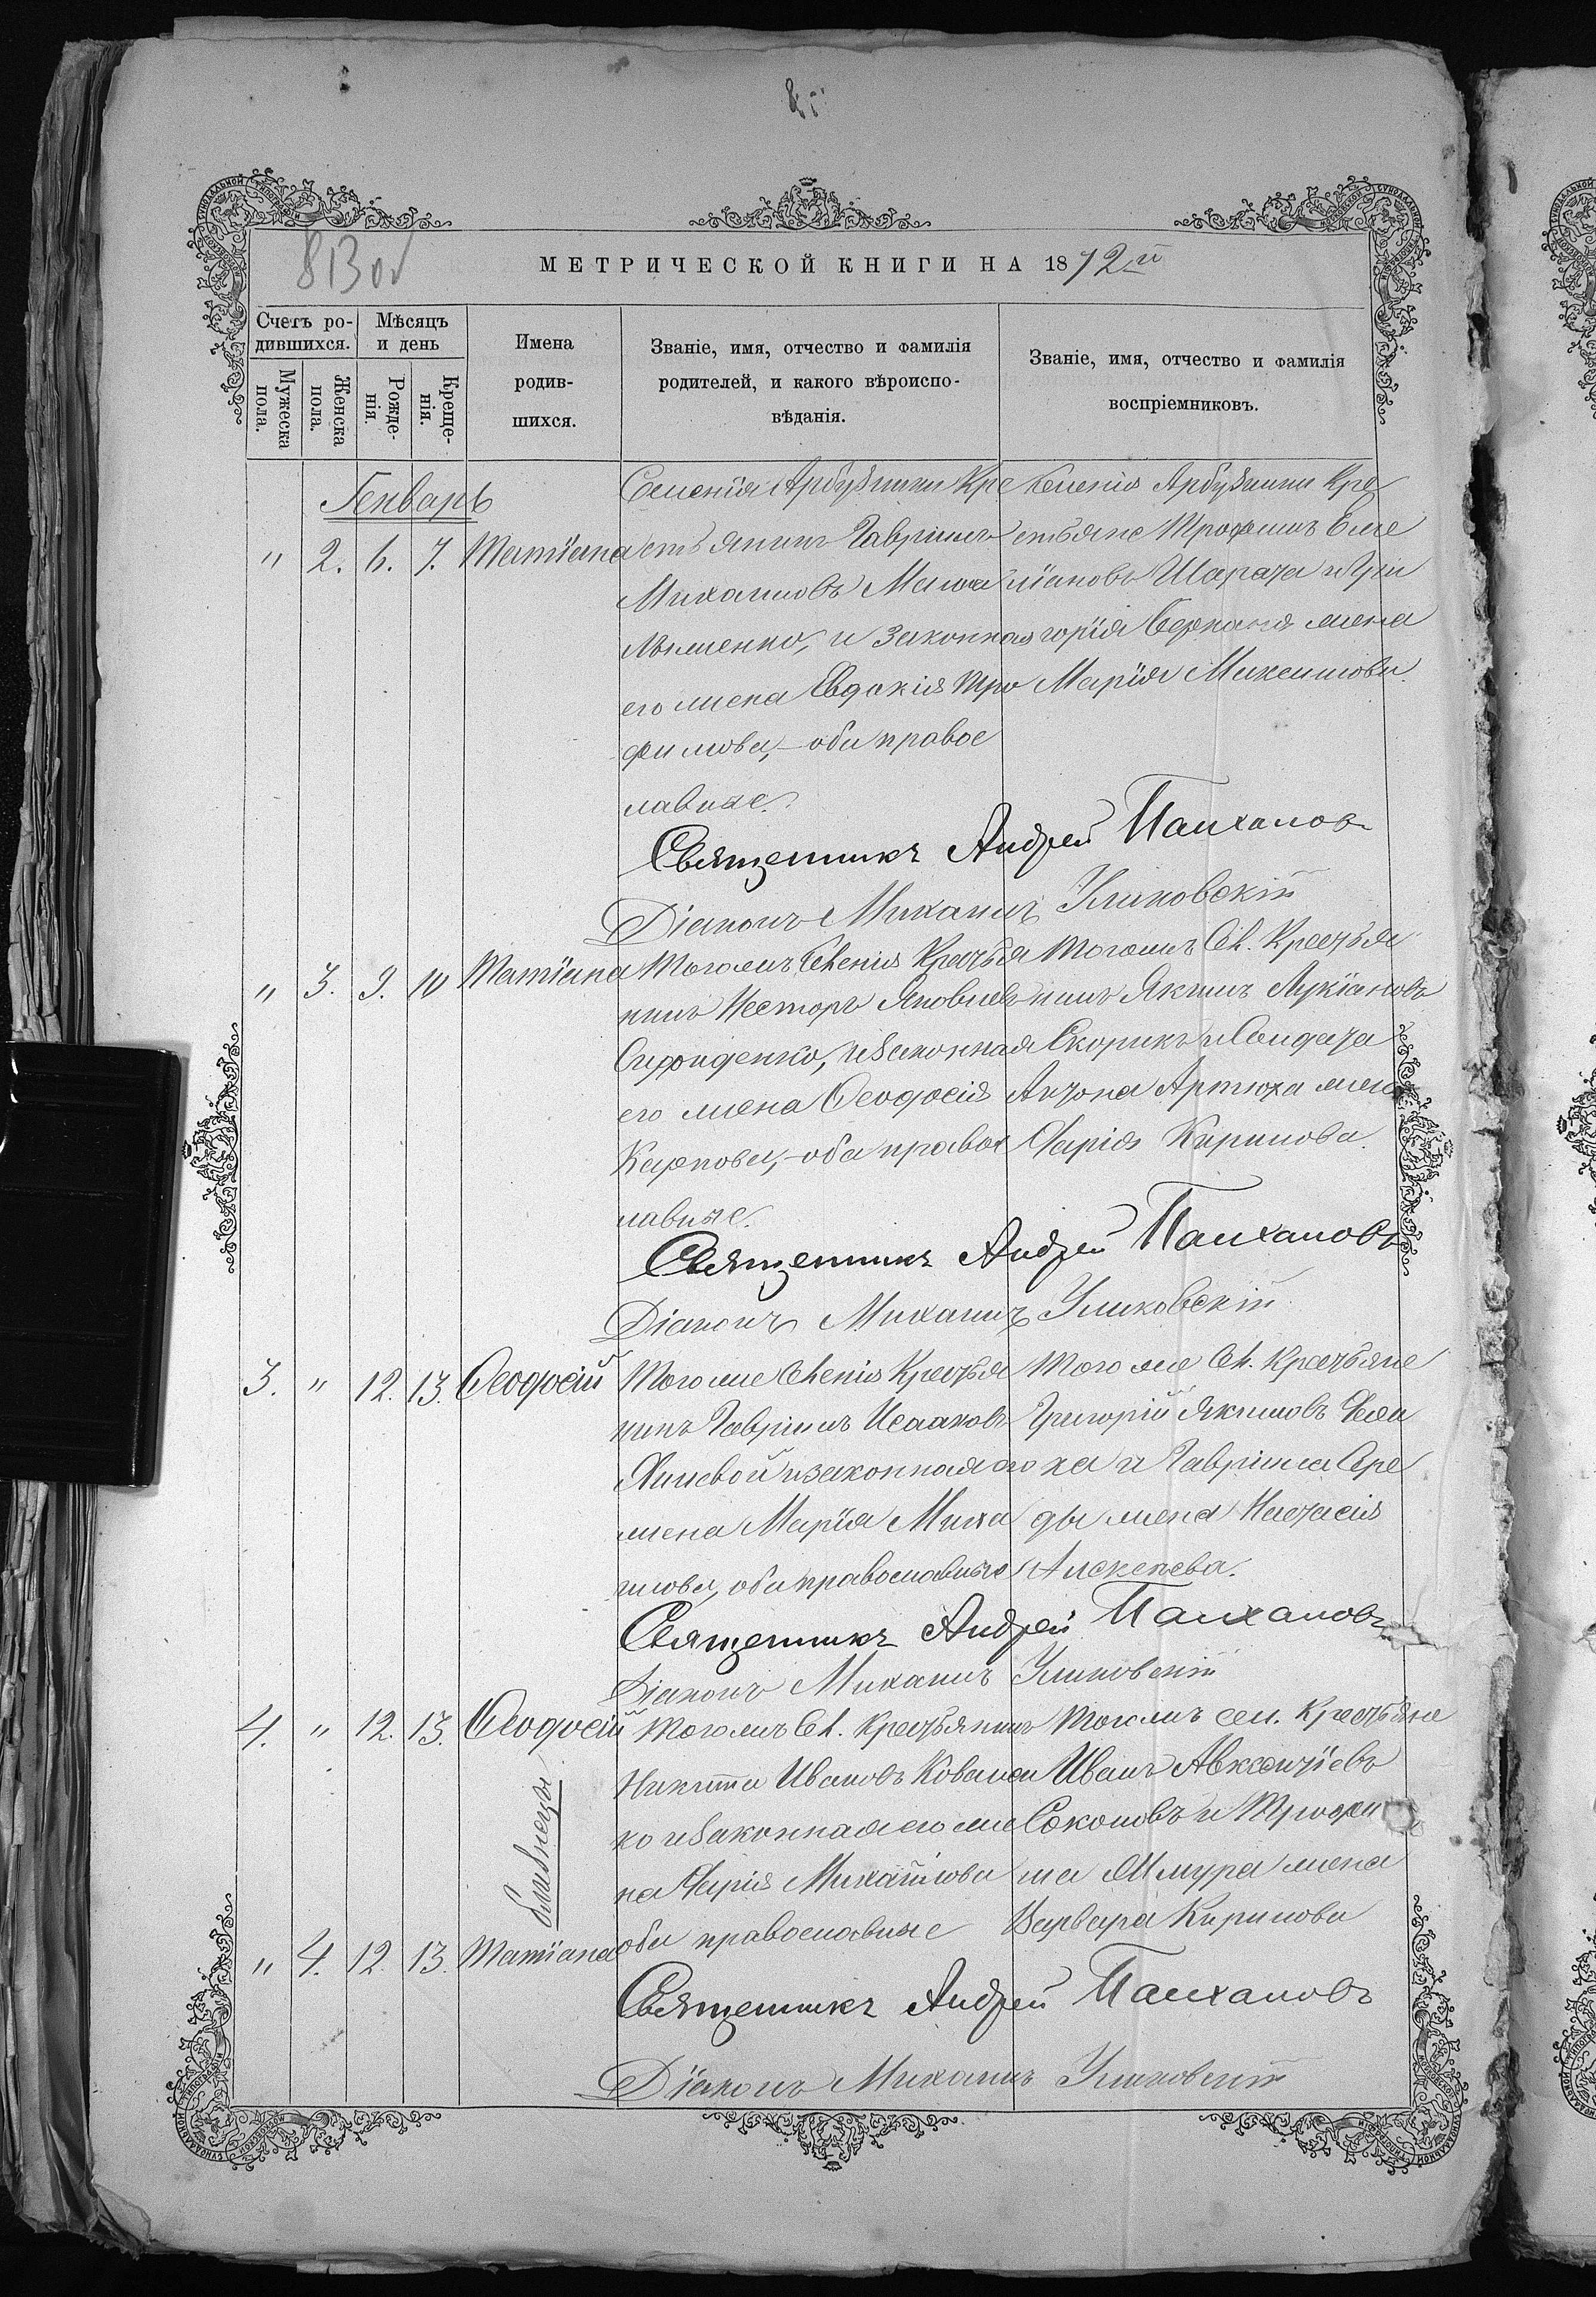 813 об
МЕТРИЧЕСКОЙ КНИГИ НА 1872й
Счетъ ро-
дившихся.
Мужеска
пола.
Женска
пола.
Мѣсяцъ
и день
Рожде-
нія.
Креще-
нія.
Имена
родив-
шихся.
Званіе, имя, отчество и фамилія
родителей, и какого вѣроиспо-
вѣданія.
Званіе, имя, отчество и фамилія
воспріемниковъ.
Генварь
" 2. 6. 7. Татіана
Селенія Арбузинки Кре
стьянинъ Гавріилъ
Михаиловъ
менко, и законная
его жена Евдокія Тро
фимова, оба правос
лавные.
Селенія Арбузинки Кре
стьяне Трофимъ Еме
ліановъ Шарата и Гри
горія жена
Марія Михаилова.
Священникъ Андрей
Діаконъ Михаилъ
" 3. 9. 10 Татіана
Тогожъ Селенія Крестья
нинъ Несторъ Яковлевъ
и законная
его жена Феодосія
Карпова, оба правос
лавные.
Тогожъ Сел. Крестья
нинъ Якимъ Лукіановъ
Скорикъ и Солдата
Антона Артюха жена
Дарія Кирилова.
Священникъ Андрей
Діаконъ Михаилъ
3. " 12. 13. Феодосій
Того же Селенія Крестья
нинъ Гавріилъ Исааковъ
и законная его
жена Марія Миха
илова, оба православные
Того же Сел. Крестьяне
Григорій Якимовъ
ха и Гавріила Сре
ды жена Настасія
Алексеева.
Священникъ Андрей
Діаконъ Михаилъ
4. " 12. 13. Феодосій
близнецы
" 4. 12. 13. Татіана
Тогожъ Сел. Крестьянинъ
Никита Ивановъ Ковален
ко и законная его же
на Дарія Михайлова
оба православные
Тогожъ сел. Крестьяне
Иванъ Авксентіевъ
Соколовъ и Трофи
ма жена
Варвара Кирилова
Священникъ Андрей
Діаконъ Михаилъ